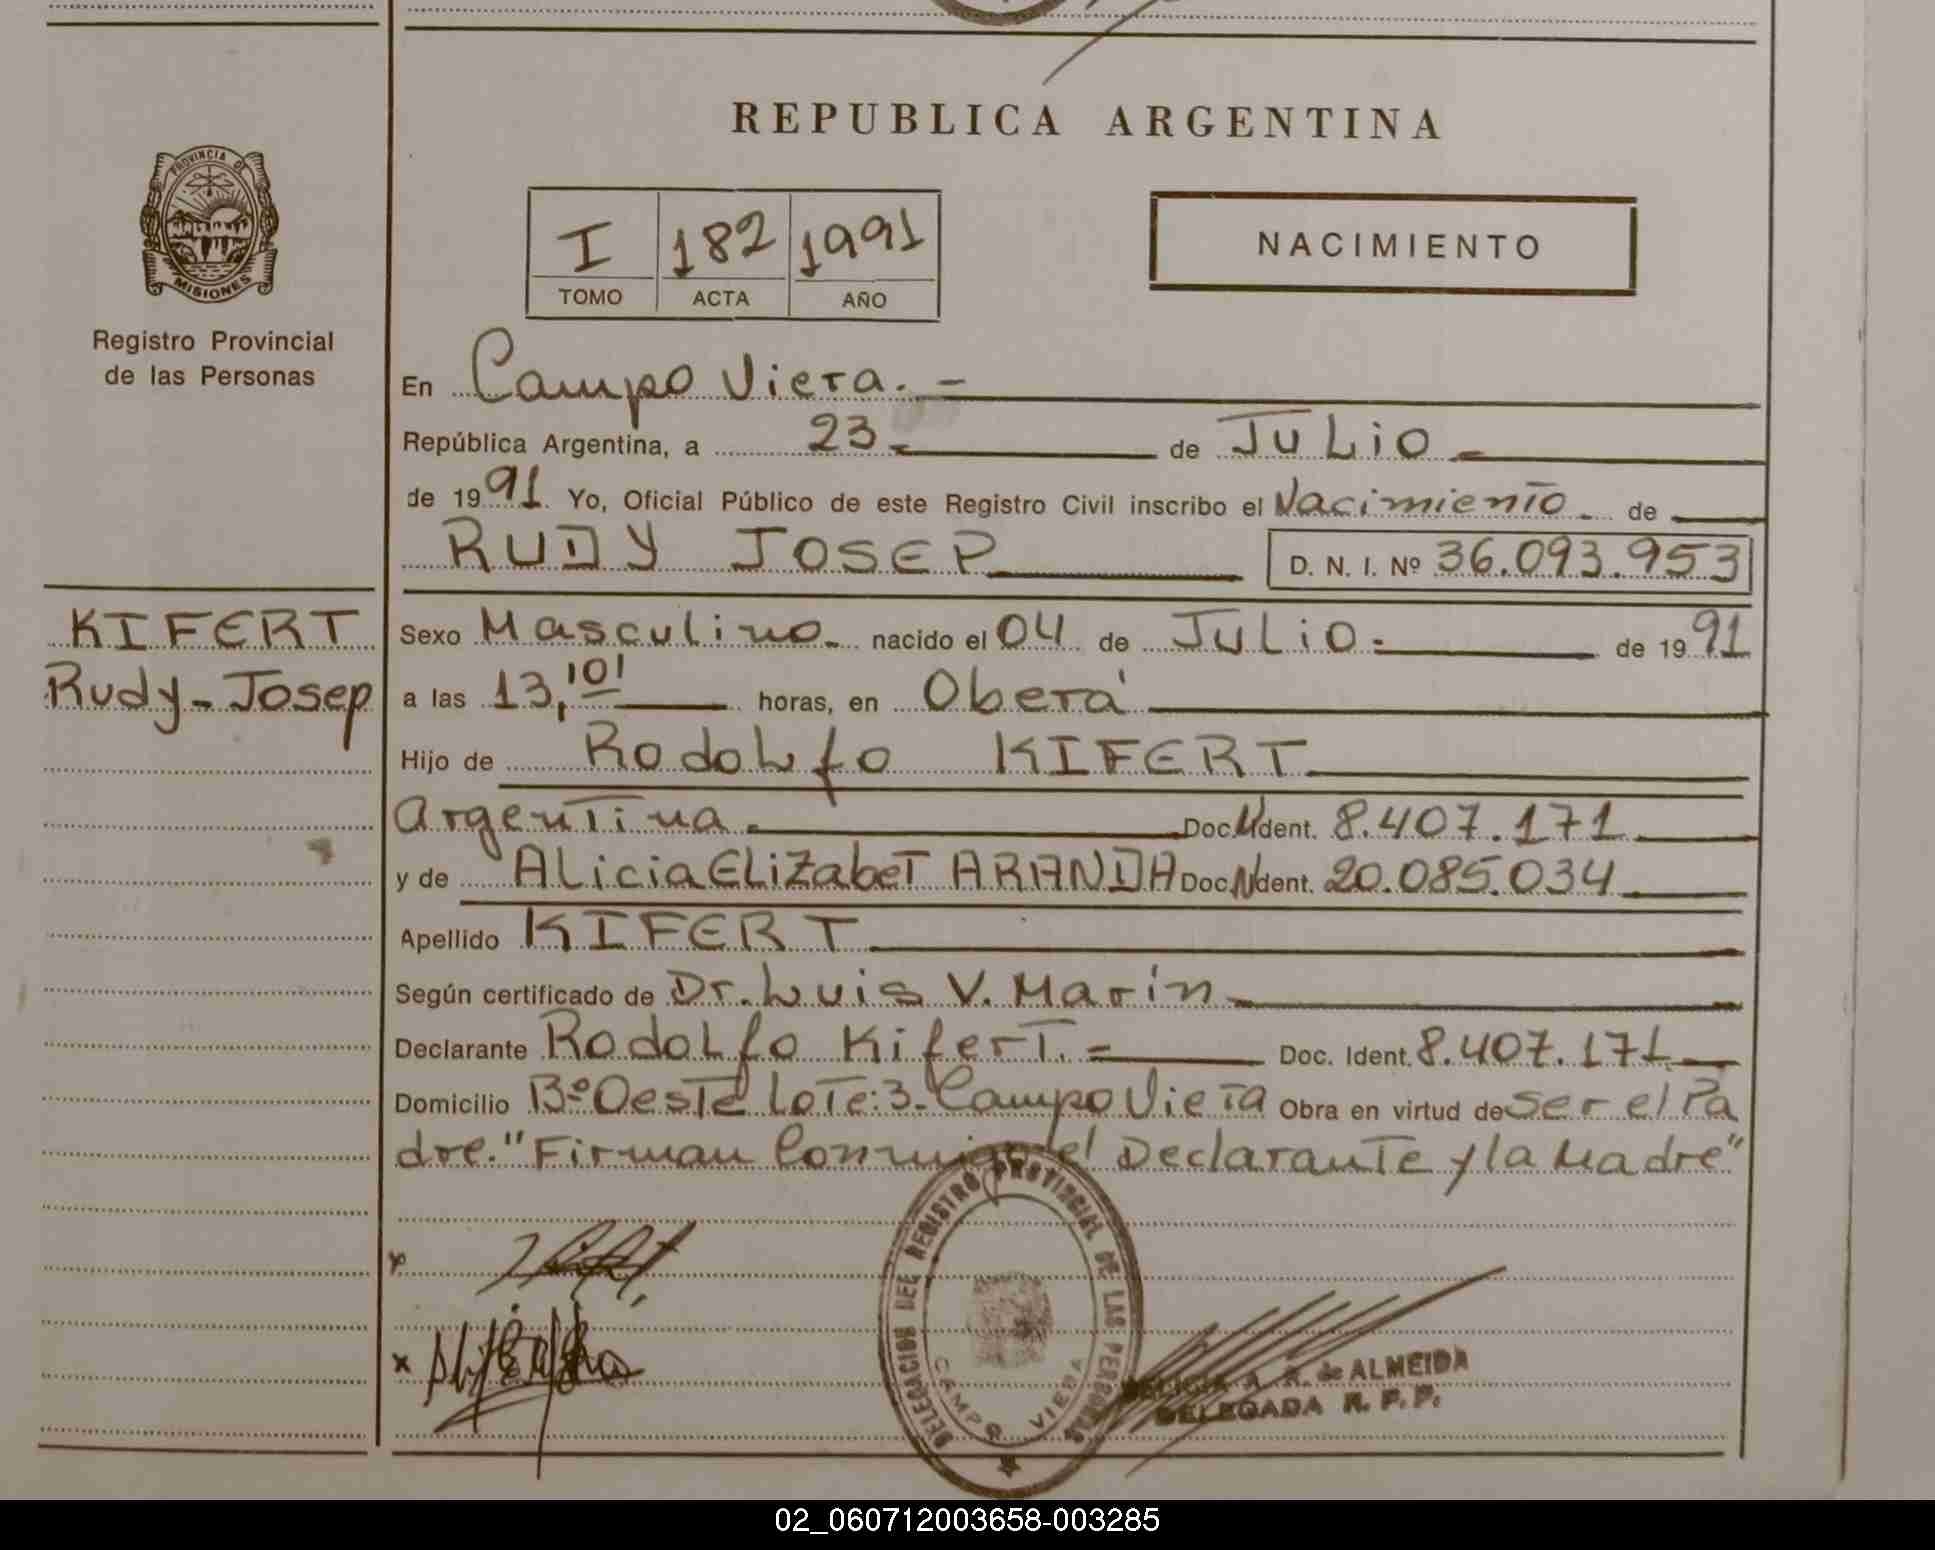 REPUBLICA ARGENTINA
PROVINCIA DE
MISIONES
Registro Provincial
de las Personas
I 182 1991
TOMO ACTA AÑO
NACIMIENTO
En Campo Viera.-
República Argentina, a 23 de JULIO
de 1991. Yo, Oficial Público de este Registro Civil inscribo el Nacimiento de
RUDY JOSEP D. N. I. Nº 36.093.953
KIFERT
Rudy-Josep
Sexo Masculino nacido el 04 de JULIO de 1991
a las 13,10' horas, en Oberá
Hijo de Rodolfo KIFERT
Argentina Doc. Ident. 8.407.171
y de Alicia Elizabet ARANDA Doc. Ident. 20.085.034
Apellido KIFERT
Según certificado de Dr. Luis V. Marín
Declarante Rodolfo Kifert.= Doc. Ident. 8.407.171
Domicilio Bº Oeste Lote:3-Campo Viera Obra en virtud de ser el Pa
dre. "Firman Conmigo el Declarante y la Madre"
DELEGACION DEL REGISTRO PROVINCIAL DE LAS PERSONAS
CAMPO VIERA
A. R. de ALMEIDA
DELEGADA R. P. P.
02_060712003658-003285